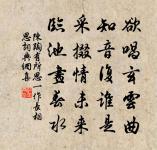 欲唱玄雲曲
知音復誰是
采掇情未來
臨池畫春水
陳陶有所思一作長相
思詞典網集